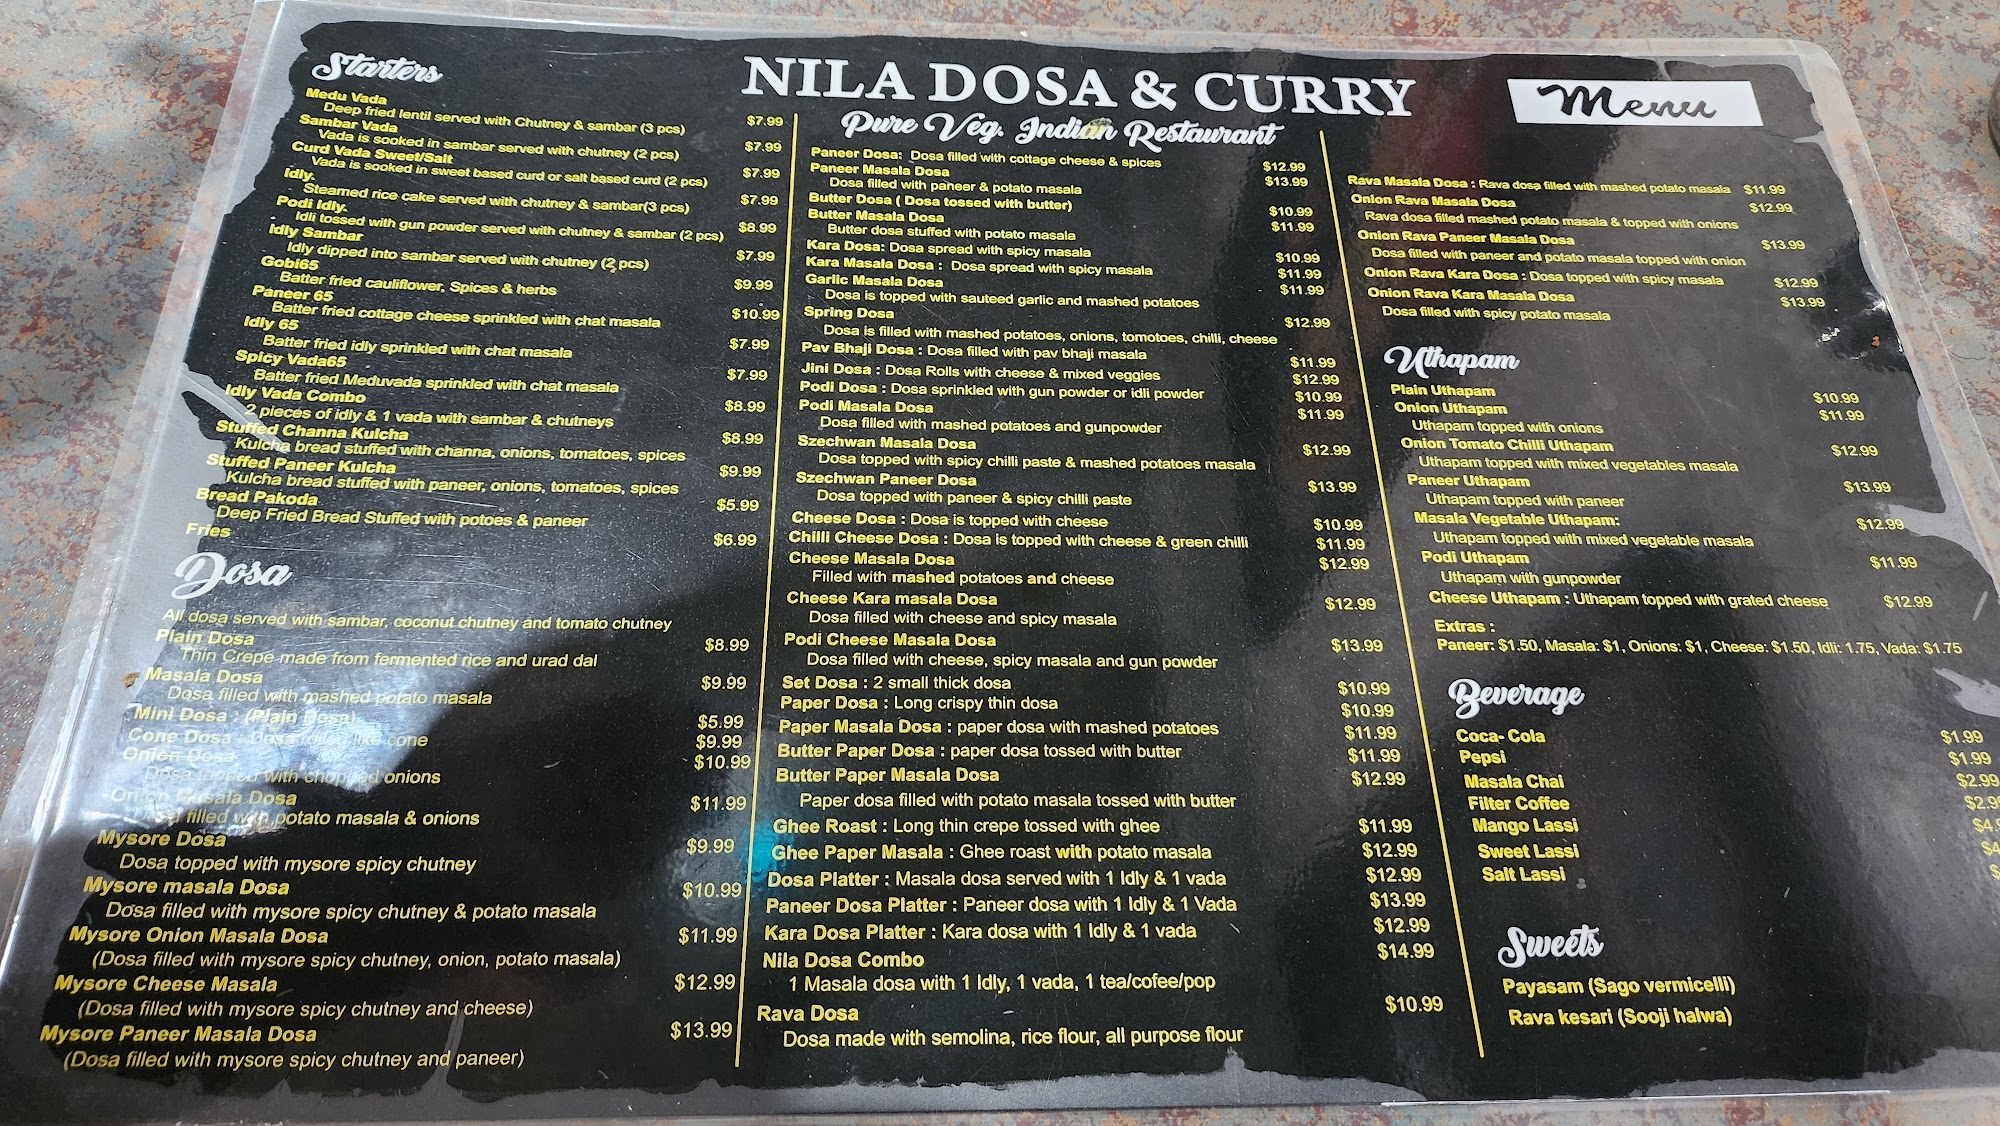 NILA DOSA & CURRY
Pure Veg. Indian Restaurant
Menu
Starters
Medu Vada $7.99
Deep fried lentil served with Chutney & sambar (3 pcs)
Sambar Vada $7.99
Vada is sooked in sambar served with chutney (2 pcs)
Curd Vada Sweet/Salt $7.99
Vada is sooked in sweet based curd or salt based curd (2 pcs)
Idly. $7.99
Steamed rice cake served with chutney & sambar(3 pcs)
Podi Idly. $8.99
Idli tossed with gun powder served with chutney & sambar (2 pcs)
Idly Sambar $7.99
Idly dipped into sambar served with chutney (2 pcs)
Gobi65 $9.99
Batter fried cauliflower, Spices & herbs
Paneer 65 $10.99
Batter fried cottage cheese sprinkled with chat masala
Idly 65 $7.99
Batter fried idly sprinkled with chat masala
Spicy Vada65 $7.99
Batter fried Meduvada sprinkled with chat masala
Idly Vada Combo $8.99
2 pieces of idly & 1 vada with sambar & chutneys
Stuffed Channa Kulcha $8.99
Kulcha bread stuffed with channa, onions, tomatoes, spices
Stuffed Paneer Kulcha $9.99
Kulcha bread stuffed with paneer, onions, tomatoes, spices
Bread Pakoda $5.99
Deep Fried Bread Stuffed with potoes & paneer
Fries $6.99
Dosa
All dosa served with sambar, coconut chutney and tomato chutney
Plain Dosa $8.99
Thin Crepe made from fermented rice and urad dal
Masala Dosa $9.99
Dosa filled with mashed potato masala
Mini Dosa : (Plain Dosa) $5.99
Cone Dosa : Dosa rolled like cone $9.99
Onion Dosa $10.99
Dosa topped with chopped onions
Onion Masala Dosa $11.99
Dosa filled with potato masala & onions
Mysore Dosa $9.99
Dosa topped with mysore spicy chutney
Mysore masala Dosa $10.99
Dosa filled with mysore spicy chutney & potato masala
Mysore Onion Masala Dosa $11.99
(Dosa filled with mysore spicy chutney, onion, potato masala)
Mysore Cheese Masala $12.99
(Dosa filled with mysore spicy chutney and cheese)
Mysore Paneer Masala Dosa $13.99
(Dosa filled with mysore spicy chutney and paneer)
Paneer Dosa: Dosa filled with cottage cheese & spices $12.99
Paneer Masala Dosa $13.99
Dosa filled with paneer & potato masala
Butter Dosa ( Dosa tossed with butter) $10.99
Butter Masala Dosa $11.99
Butter dosa stuffed with potato masala
Kara Dosa: Dosa spread with spicy masala $10.99
Kara Masala Dosa : Dosa spread with spicy masala $11.99
Garlic Masala Dosa $11.99
Dosa is topped with sauteed garlic and mashed potatoes
Spring Dosa $12.99
Dosa is filled with mashed potatoes, onions, tomotoes, chilli, cheese
Pav Bhaji Dosa : Dosa filled with pav bhaji masala $11.99
Jini Dosa : Dosa Rolls with cheese & mixed veggies $12.99
Podi Dosa : Dosa sprinkled with gun powder or idli powder $10.99
Podi Masala Dosa $11.99
Dosa filled with mashed potatoes and gunpowder
Szechwan Masala Dosa $12.99
Dosa topped with spicy chilli paste & mashed potatoes masala
Szechwan Paneer Dosa $13.99
Dosa topped with paneer & spicy chilli paste
Cheese Dosa : Dosa is topped with cheese $10.99
Chilli Cheese Dosa : Dosa is topped with cheese & green chilli $11.99
Cheese Masala Dosa $12.99
Filled with mashed potatoes and cheese
Cheese Kara masala Dosa $12.99
Dosa filled with cheese and spicy masala
Podi Cheese Masala Dosa $13.99
Dosa filled with cheese, spicy masala and gun powder
Set Dosa : 2 small thick dosa $10.99
Paper Dosa : Long crispy thin dosa $10.99
Paper Masala Dosa : paper dosa with mashed potatoes $11.99
Butter Paper Dosa : paper dosa tossed with butter $11.99
Butter Paper Masala Dosa $12.99
Paper dosa filled with potato masala tossed with butter
Ghee Roast : Long thin crepe tossed with ghee $11.99
Ghee Paper Masala : Ghee roast with potato masala $12.99
Dosa Platter : Masala dosa served with 1 Idly & 1 vada $12.99
Paneer Dosa Platter : Paneer dosa with 1 Idly & 1 Vada $13.99
Kara Dosa Platter : Kara dosa with 1 Idly & 1 vada $12.99
Nila Dosa Combo $14.99
1 Masala dosa with 1 Idly, 1 vada, 1 tea/cofee/pop
Rava Dosa $10.99
Dosa made with semolina, rice flour, all purpose flour
Rava Masala Dosa : Rava dosa filled with mashed potato masala $11.99
Onion Rava Masala Dosa $12.99
Rava dosa filled mashed potato masala & topped with onions
Onion Rava Paneer Masala Dosa $13.99
Dosa filled with paneer and potato masala topped with onion
Onion Rava Kara Dosa : Dosa topped with spicy masala $12.99
Onion Rava Kara Masala Dosa $13.99
Dosa filled with spicy potato masala
Uthapam
Plain Uthapam $10.99
Onion Uthapam $11.99
Uthapam topped with onions
Onion Tomato Chilli Uthapam $12.99
Uthapam topped with mixed vegetables masala
Paneer Uthapam $13.99
Uthapam topped with paneer
Masala Vegetable Uthapam: $12.99
Uthapam topped with mixed vegetable masala
Podi Uthapam $11.99
Uthapam with gunpowder
Cheese Uthapam : Uthapam topped with grated cheese $12.99
Extras :
Paneer: $1.50, Masala: $1, Onions: $1, Cheese: $1.50, Idli: 1.75, Vada: $1.75
Beverage
Coca- Cola $1.99
Pepsi $1.99
Masala Chai $2.99
Filter Coffee
Mango Lassi
Sweet Lassi
Salt Lassi
Sweets
Payasam (Sago vermicelli)
Rava kesari (Sooji halwa)